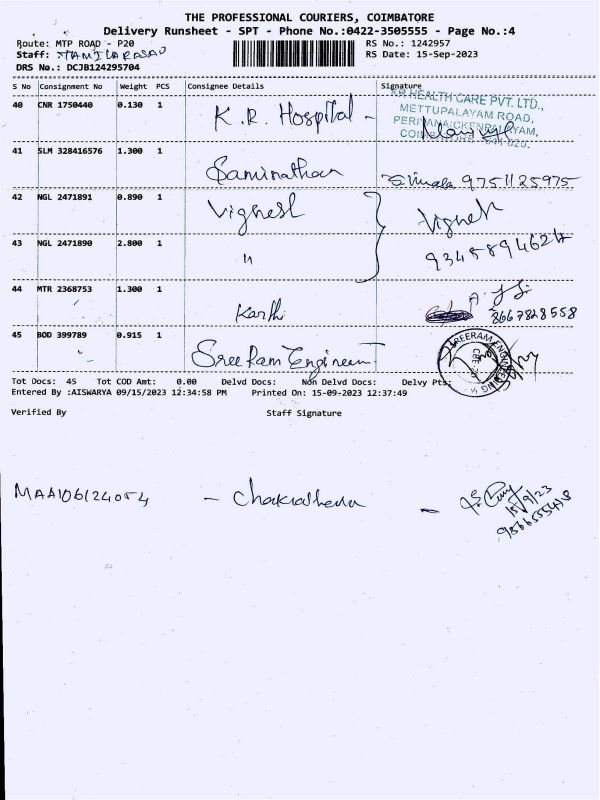 THE PROFESSIONAL COURIERS, COIMBATORE
Delivery Runsheet - SPT - Phone No.:0422-3505555 - Page No.:4
Route: MTP ROAD - P20 RS No.: 1242957
Staff: TAMILARASAN RS Date: 15-Sep-2023
DRS No.: DCJB124295704
S No Consignment No Weight PCS Consignee Details Signature
40 CNR 1750440 0.130 1 K.R. Hospital -
KR HEALTH CARE PVT. LTD.,
METTUPALAYAM ROAD,
PERIYANAICKENPALAYAM,
41 SLM 328416576 1.300 1 Saminathan Vimala 9751125975
42 NGL 2471891 0.890 1 Vignesh Vignesh
43 NGL 2471890 2.800 1 " 9345894624
44 MTR 2368753 1.300 1 Karthi 8667828558
45 BOD 399789 0.915 1 Sree Ram Engineer
SREERAM ENGINEERING
Tot Docs: 45 Tot COD Amt: 0.00 Delvd Docs: Non Delvd Docs: Delvy Pts:
Entered By :AISWARYA 09/15/2023 12:34:58 PM Printed On: 15-09-2023 12:37:49
Verified By Staff Signature
MAA106124054 - -
15/9/23